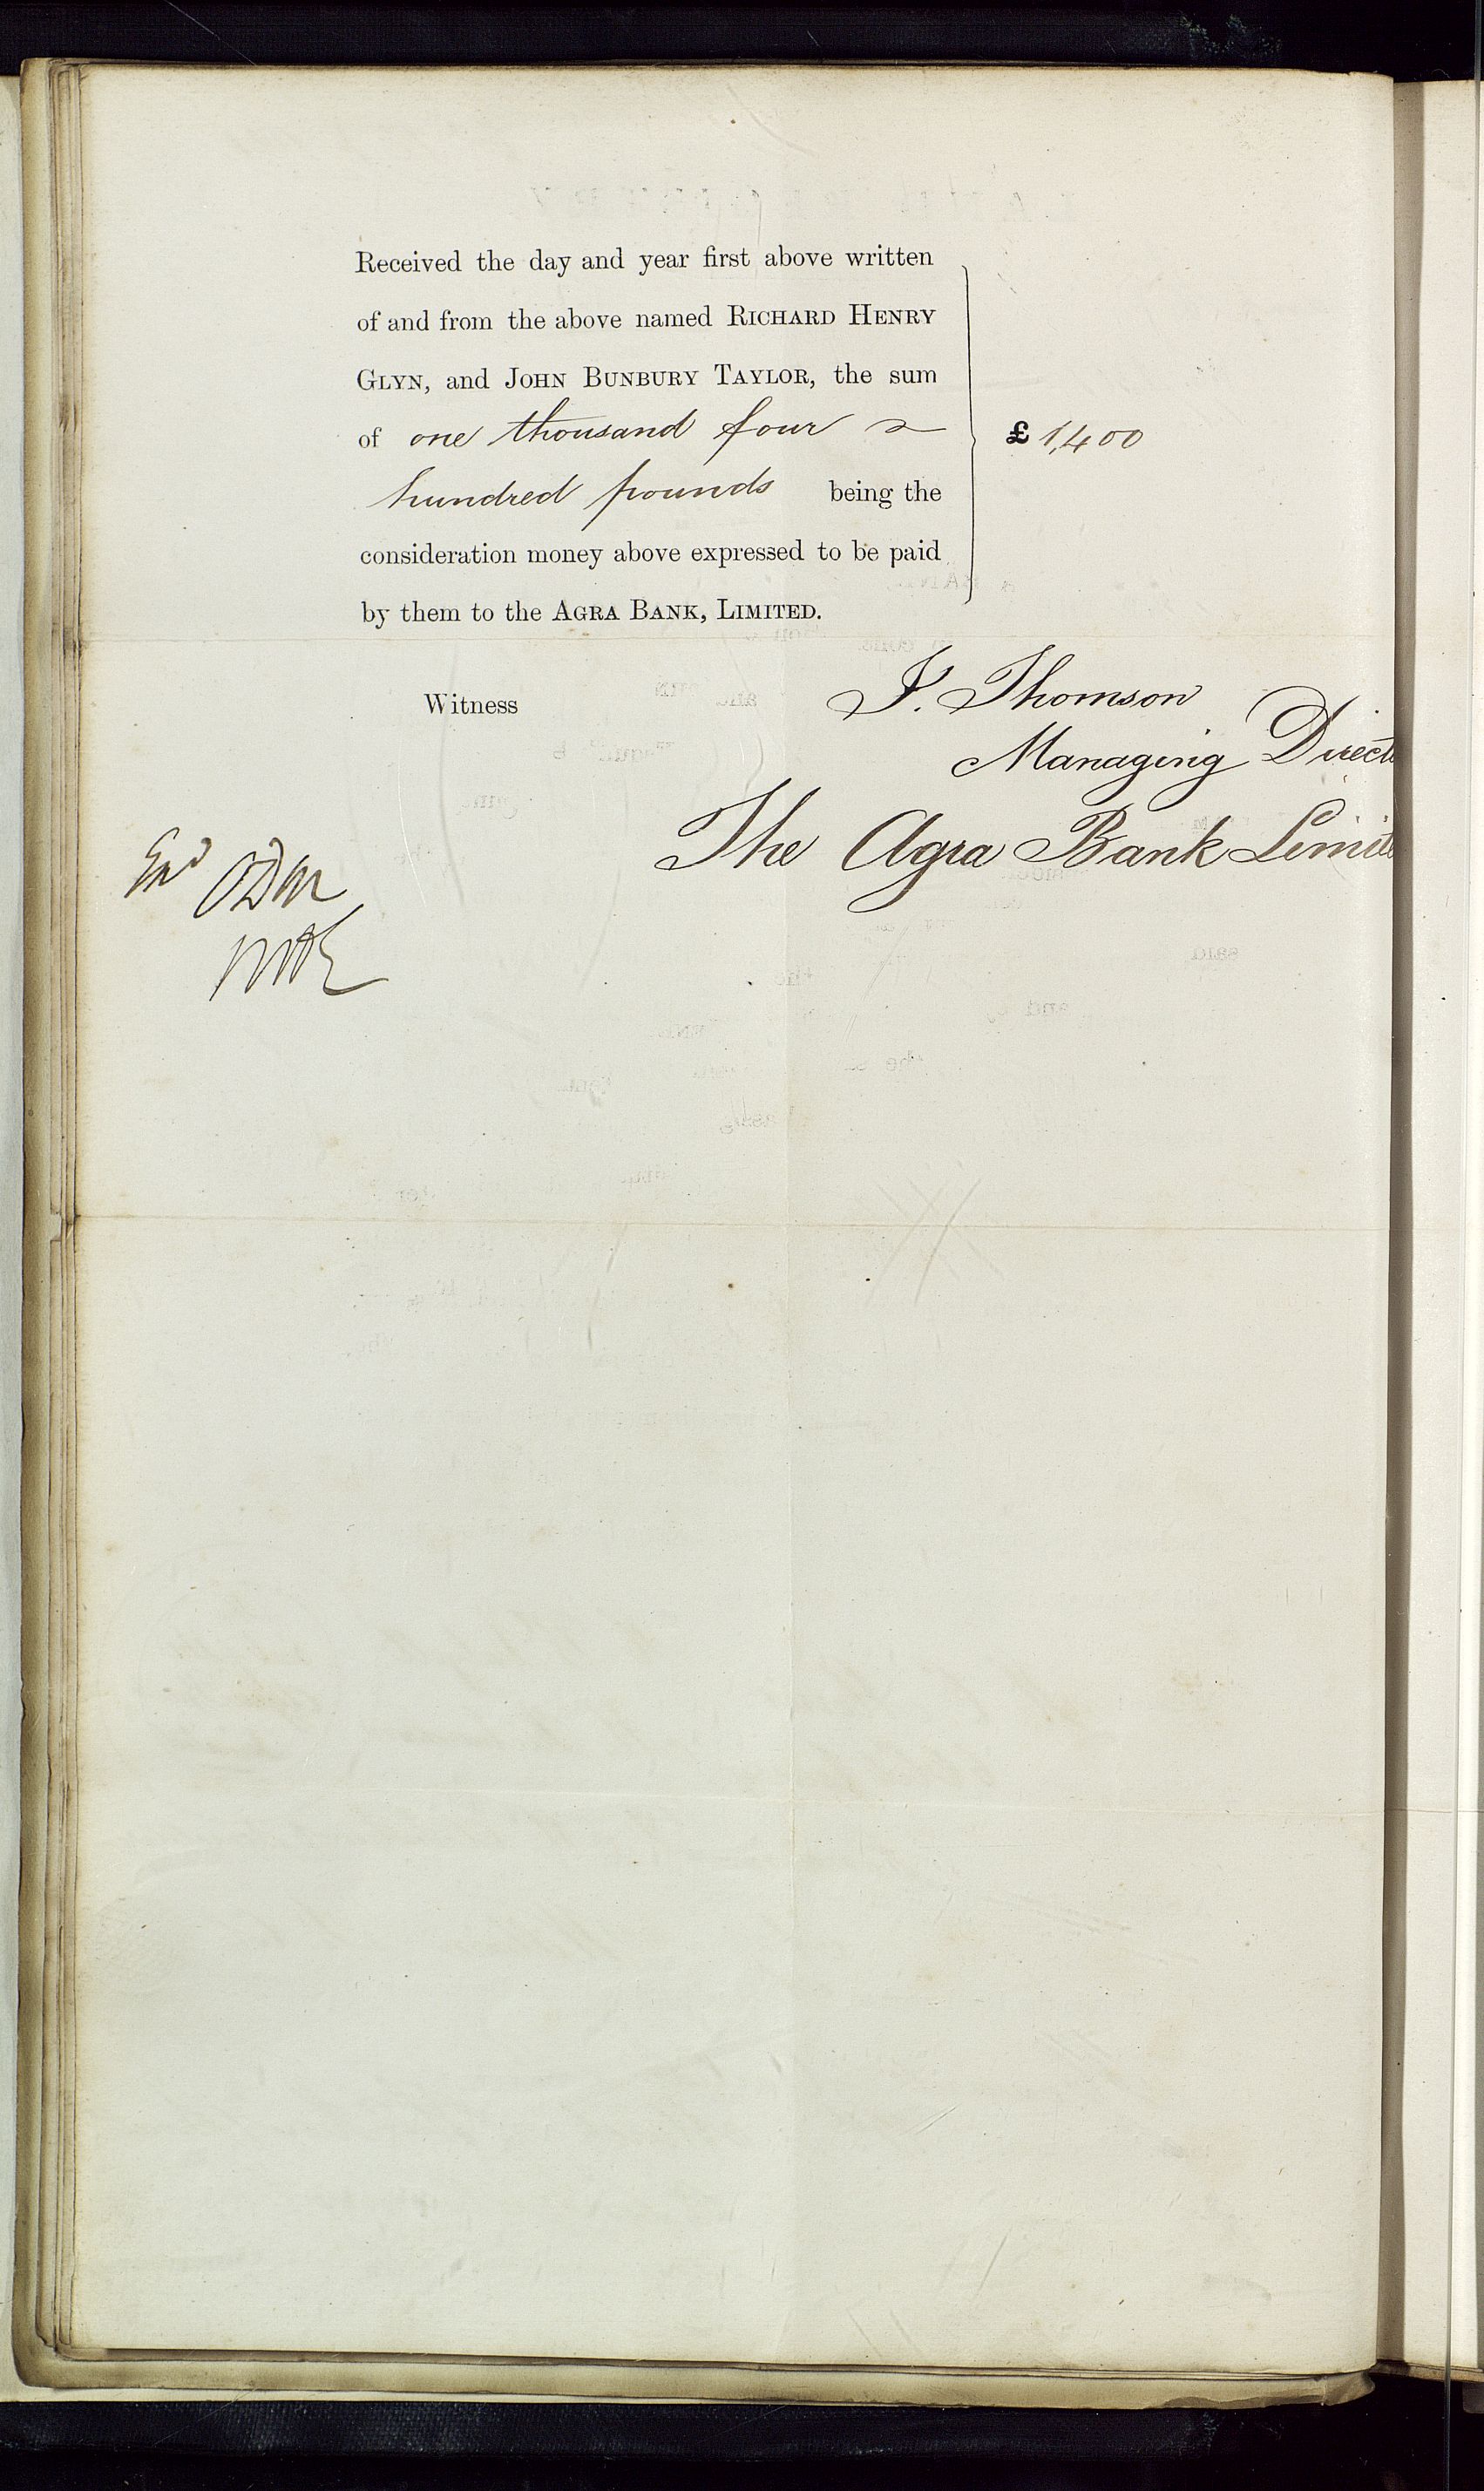 Received the day and year first above written
of and from the above named RICHARD HENRY
GLYN, and JOHN BUNBURY TAYLOR, the sum
of one thousand four
hundred pounds being the
consideration money above expressed to be paid
by them to the AGRA BANK, LIMITED.
£ 1,400
Witness
J. Thomson
Managing Direct
The Agra Bank Limit